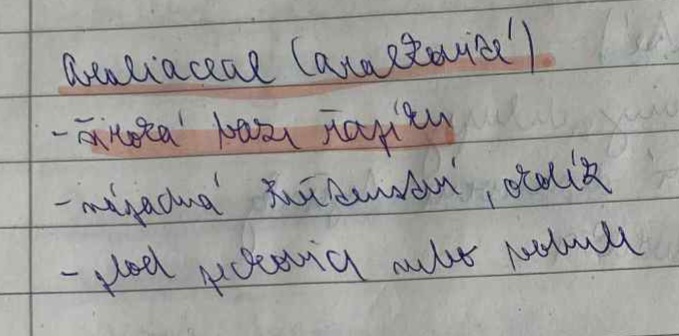 Araliaceae (aralkovité)
- široká báze řapíku
- nápadná květenství, okolík
- plod peckovice nebo bobule